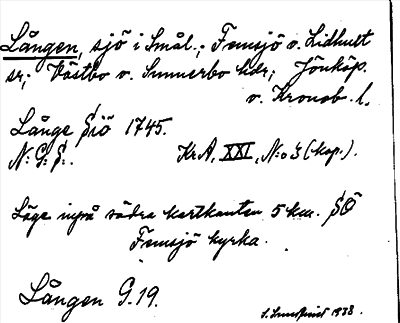 Lången, sjö i Smål.; Femsjö o. Lidhult
sr; Västbo o. Sunnerbo hdr; Jönköp.
o. Kronob. l.
Långe Siö 1745.
N: G: S:. KrA, XXI, N:o 3 (kop.).
Läge inpå södra kartkanten 5 km. SÖ
Femsjö kyrka.
Lången G.19.
1938